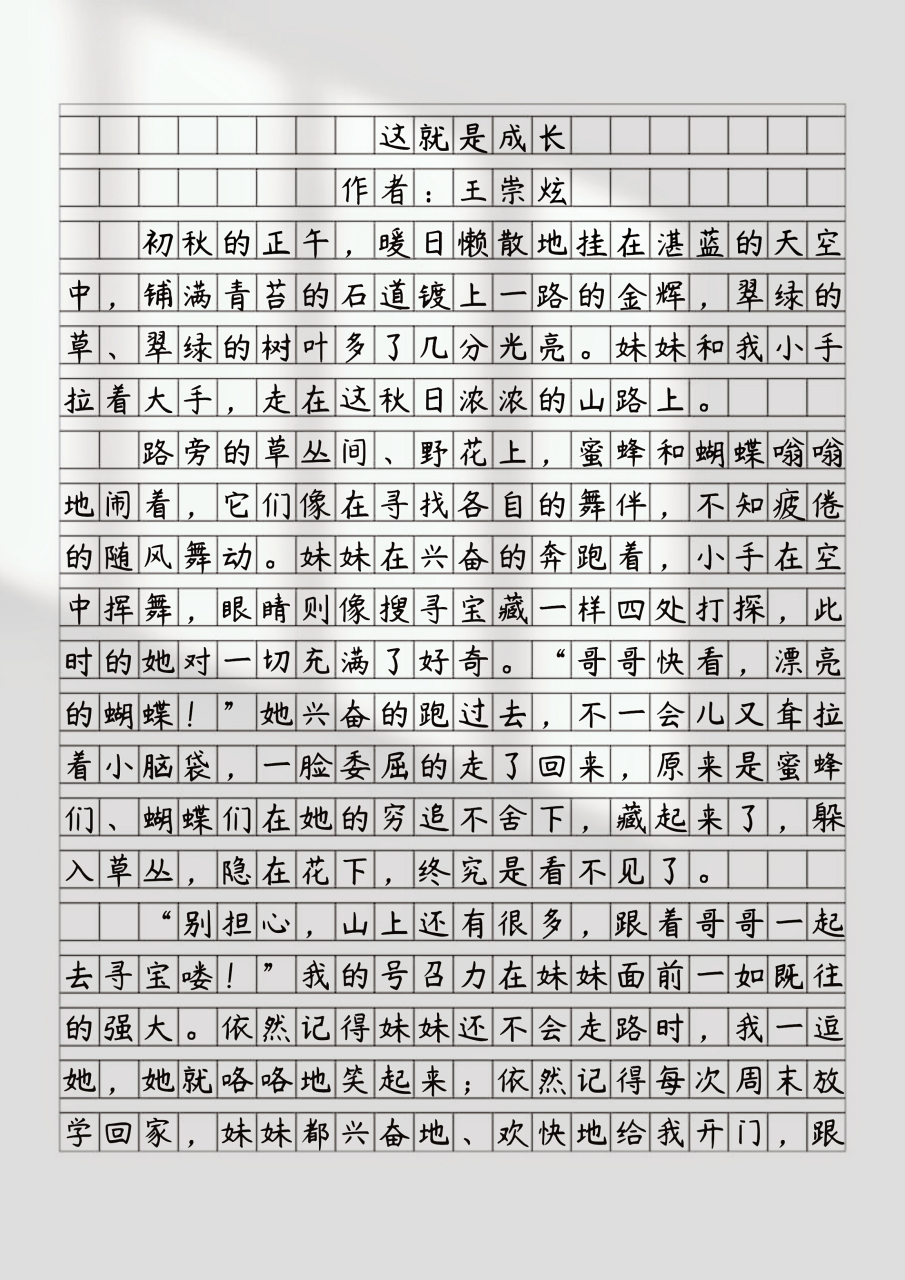 这就是成长
作者：王崇炫
初秋的正午，暖日懒散地挂在湛蓝的天空
中，铺满青苔的石道镀上一路的金辉，翠绿的
草、翠绿的树叶多了几分光亮。妹妹和我小手
拉着大手，走在这秋日浓浓的山路上。
路旁的草丛间、野花上，蜜蜂和蝴蝶嗡嗡
地闹着，它们像在寻找各自的舞伴，不知疲倦
的随风舞动。妹妹在兴奋的奔跑着，小手在空
中挥舞，眼睛则像搜寻宝藏一样四处打探，此
时的她对一切充满了好奇。“哥哥快看，漂亮
的蝴蝶！”她兴奋的跑过去，不一会儿又耷拉
着小脑袋，一脸委屈的走了回来，原来是蜜蜂
们、蝴蝶们在她的穷追不舍下，藏起来了，躲
入草丛，隐在花下，终究是看不见了。
“别担心，山上还有很多，跟着哥哥一起
去寻宝喽！”我的号召力在妹妹面前一如既往
的强大。依然记得妹妹还不会走路时，我一逗
她，她就咯咯地笑起来；依然记得每次周末放
学回家，妹妹都兴奋地、欢快地给我开门，跟